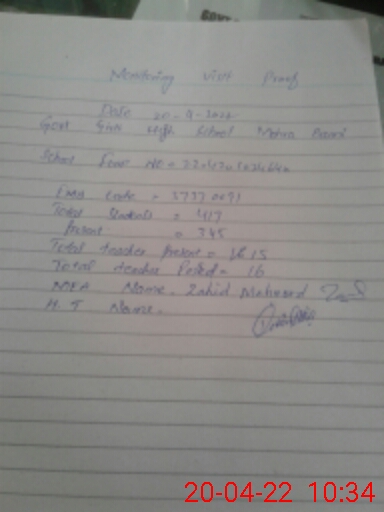 Monitoring Visit Proof
Date 20-4-2022
Govt Girls High School
School Code No =
EMIS Code = 37370091
Total Students = 417
Present = 345
Total teacher Present = 15
Total teacher Posted = 16
MEA Name. Zahid Mahmood
H. T Name.
20-04-22 10:34